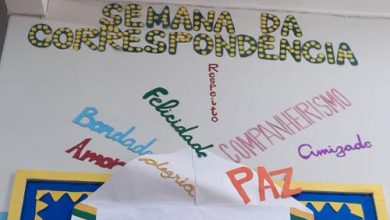 SEMANA DA
CORRESPONDÊNCIA
Respeito
Felicidade
COMPANHERISMO
Bondade
Amizade
Amor
Alegria
PAZ